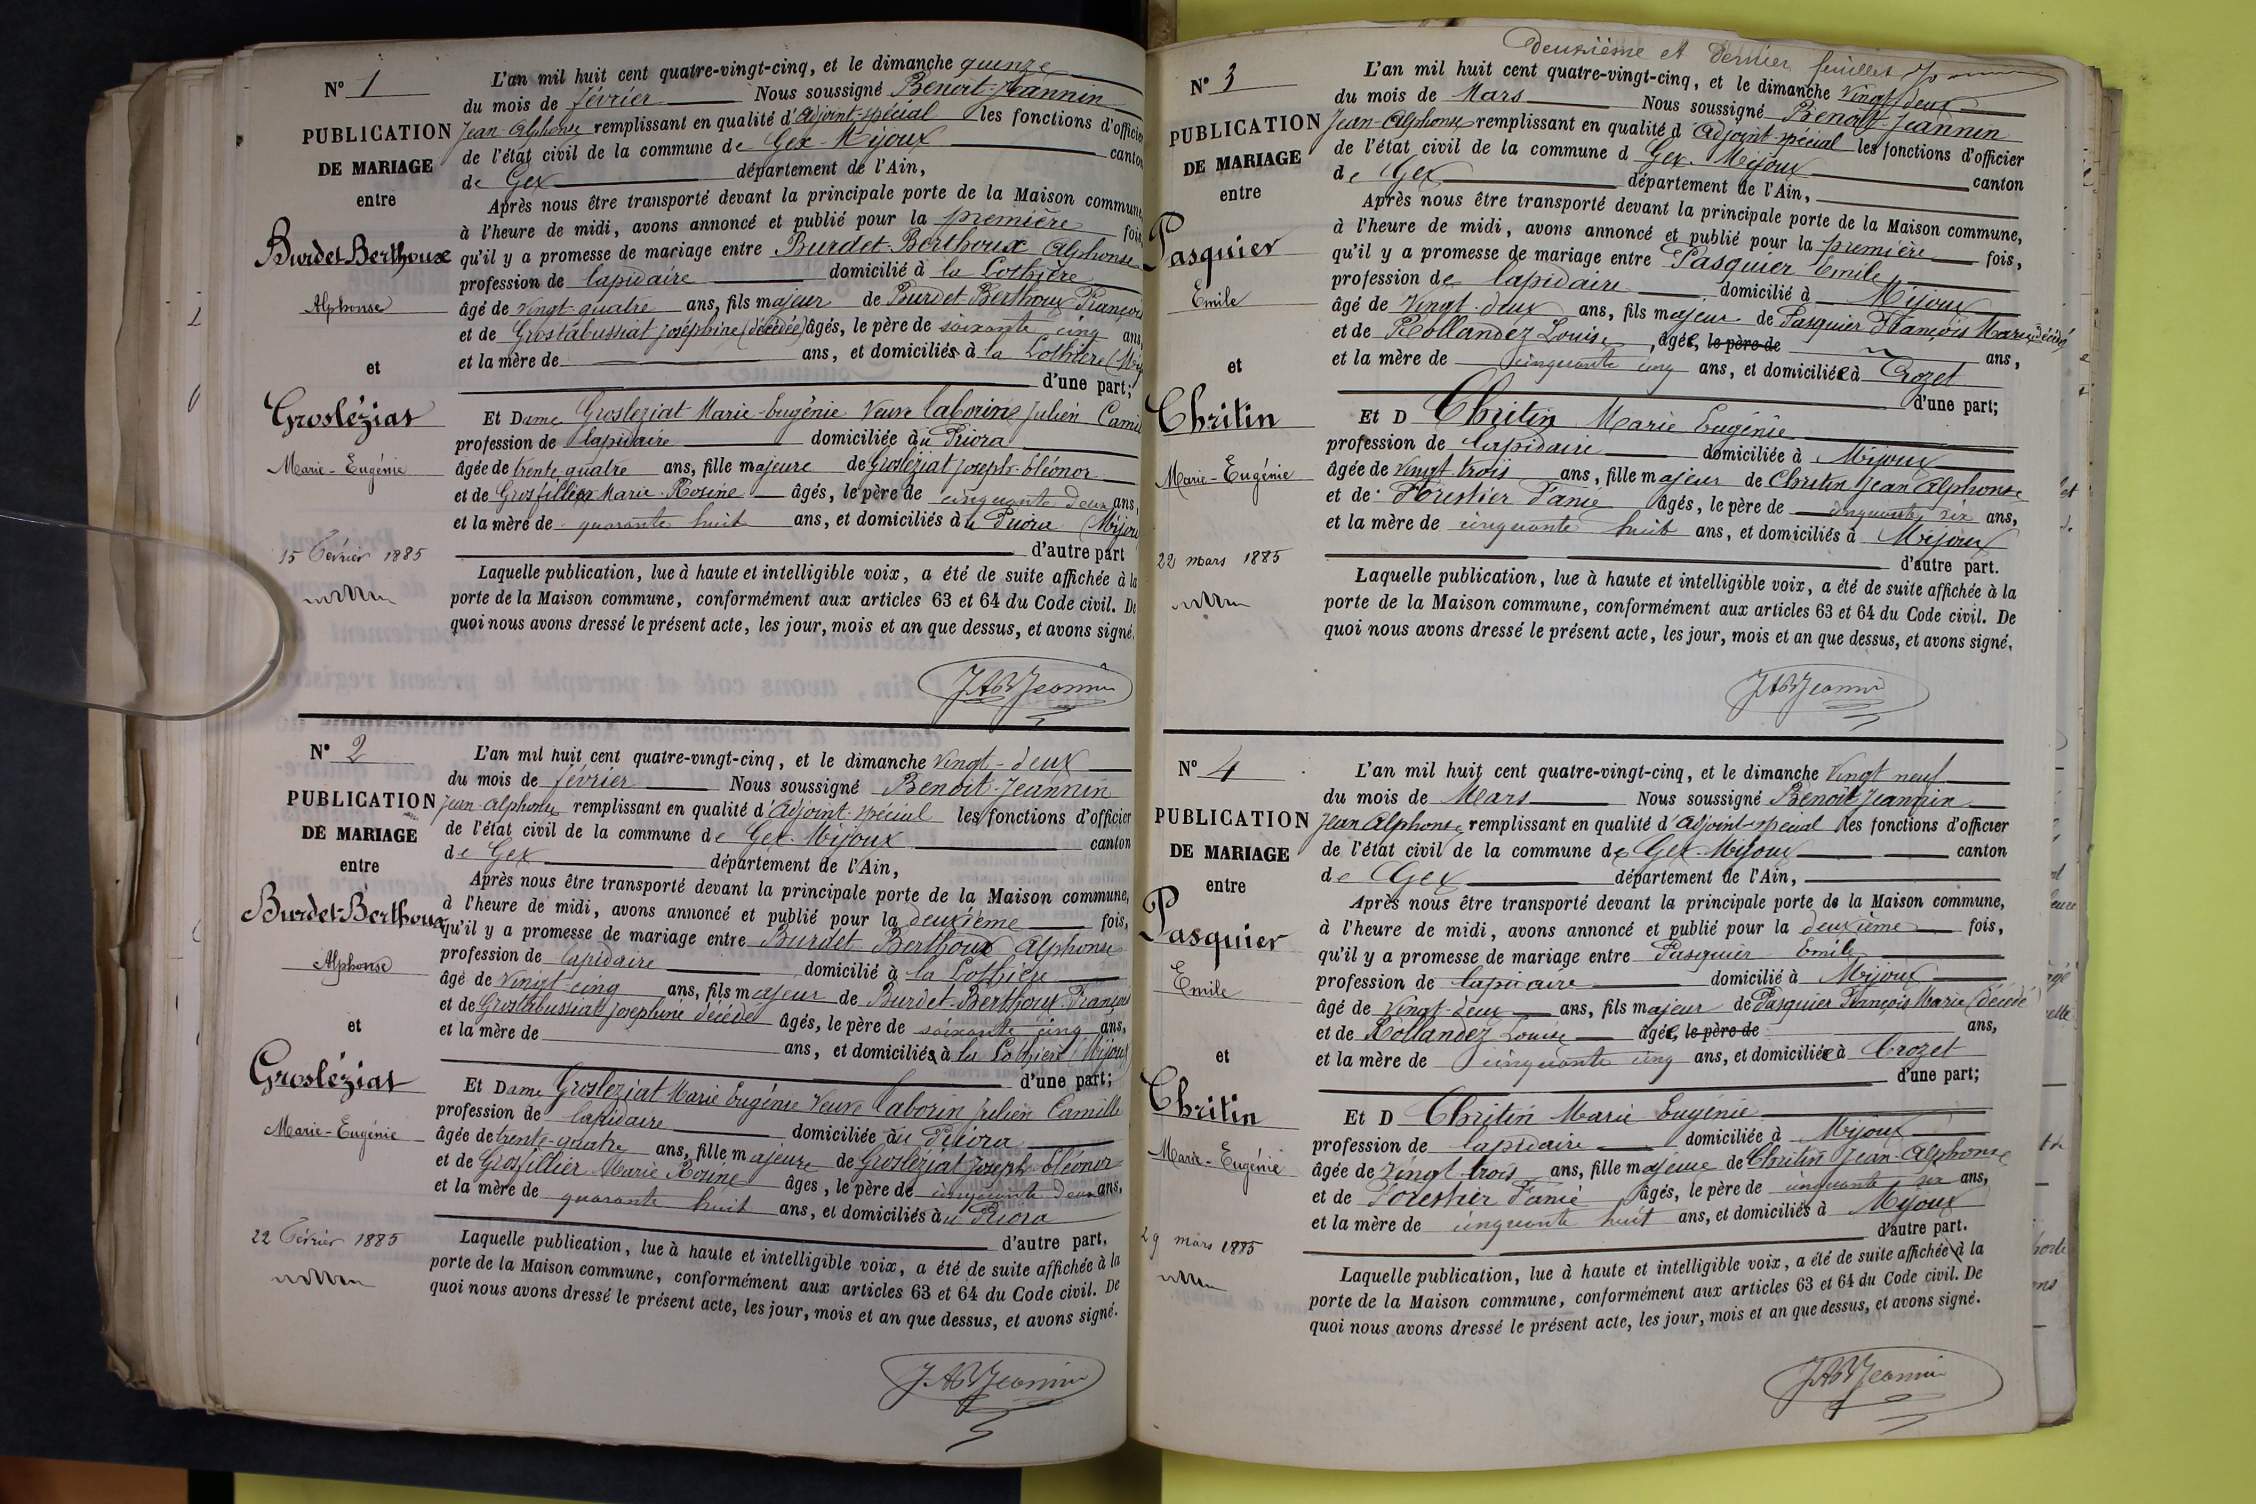 N° 1
PUBLICATION
DE MARIAGE
entre
Burdet-Berthoux
Alphonse
et
Groslézias
Marie-Eugénie
15 Février 1885
L'an mil huit cent quatre-vingt-cinq, et le dimanche quinze
du mois de février Nous soussigné Benoit-Jeannin
Jean-Alphonse remplissant en qualité d'adjoint-spécial les fonctions d'officier
de l'état civil de la commune de Gex-Mijoux canton
de Gex département de l'Ain,
Après nous être transporté devant la principale porte de la Maison commune,
à l'heure de midi, avons annoncé et publié pour la première fois,
qu'il y a promesse de mariage entre Burdet-Berthoux Alphonse
profession de lapidaire domicilié à la Lothière
âgé de vingt-quatre ans, fils majeur de Burdet-Berthoux François
et de Grostabussiat Joséphine (décédée) âgés, le père de soixante cinq ans,
et la mère de ans, et domiciliés à la Lothière (Mij
d'une part;
Et Dame Grosleziat Marie-Eugénie Veuve Laborin Julien Cami
profession de lapidaire domiciliée au Priora
âgée de trente quatre ans, fille majeure de Grosléziat Joseph-éléonor
et de Grosfillier Marie-Rosine âgés, le père de cinquante deux ans,
et la mère de quarante huit ans, et domiciliés au Priora (Mijou
d'autre part
Laquelle publication, lue à haute et intelligible voix, a été de suite affichée à la
porte de la Maison commune, conformément aux articles 63 et 64 du Code civil. De
quoi nous avons dressé le présent acte, les jour, mois et an que dessus, et avons signé.
JABJeannin
N° 2
PUBLICATION
DE MARIAGE
entre
Burdet-Berthoux
Alphonse
et
Groslézias
Marie-Eugénie
22 Février 1885
L'an mil huit cent quatre-vingt-cinq, et le dimanche vingt-deux
du mois de février Nous soussigné Benoit-Jeannin
Jean-Alphonse remplissant en qualité d'adjoint-spécial les fonctions d'officier
de l'état civil de la commune de Gex-Mijoux canton
de Gex département de l'Ain,
Après nous être transporté devant la principale porte de la Maison commune,
à l'heure de midi, avons annoncé et publié pour la deuxième fois,
qu'il y a promesse de mariage entre Burdet Berthoux Alphonse
profession de lapidaire domicilié à la Lothière
âgé de vingt-cinq ans, fils majeur de Burdet-Berthoux François
et de Grostabussiat Joséphine décédé âgés, le père de soixante cinq ans,
et la mère de ans, et domiciliés à la Lothière (Mijoux)
d'une part;
Et Dame Grosleziat Marie Eugénie Veuve Laborin Julien Camille
profession de lapidaire domiciliée au Priora
âgée de trente-quatre ans, fille majeure de Grosléziat Joseph éléonor
et de Grosfillier Marie Rosine âgés, le père de cinquante deux ans,
et la mère de quarante huit ans, et domiciliés au Priora
d'autre part.
Laquelle publication, lue à haute et intelligible voix, a été de suite affichée à la
porte de la Maison commune, conformément aux articles 63 et 64 du Code civil. De
quoi nous avons dressé le présent acte, les jour, mois et an que dessus, et avons signé.
JABJeannin
Deuxième et dernier feuillet
N° 3
PUBLICATION
DE MARIAGE
entre
Pasquier
Emile
et
Chritin
Marie-Eugénie
22 mars 1885
L'an mil huit cent quatre-vingt-cinq, et le dimanche vingt deux
du mois de Mars Nous soussigné Benoit-Jeannin
Jean-Alphonse remplissant en qualité d adjoint-spécial les fonctions d'officier
de l'état civil de la commune d Gex-Mijoux canton
de Gex département de l'Ain,
Après nous être transporté devant la principale porte de la Maison commune,
à l'heure de midi, avons annoncé et publié pour la première fois,
qu'il y a promesse de mariage entre Pasquier Emile
profession de lapidaire domicilié à Mijoux
âgé de vingt-deux ans, fils majeur de Pasquier François Marie décédé
et de Rollandez Louise, âgée, le père de ans,
et la mère de cinquante cinq ans, et domiciliée à Crozet
d'une part;
Et D Chritin Marie Eugénie
profession de lapidaire domiciliée à Mijoux
âgée de vingt-trois ans, fille majeur de Chritin Jean Alphonse
et de Forestier Fanie âgés, le père de cinquante six ans,
et la mère de cinquante huit ans, et domiciliés à Mijoux
d'autre part.
Laquelle publication, lue à haute et intelligible voix, a été de suite affichée à la
porte de la Maison commune, conformément aux articles 63 et 64 du Code civil. De
quoi nous avons dressé le présent acte, les jour, mois et an que dessus, et avons signé.
JABJeannin
N° 4
PUBLICATION
DE MARIAGE
entre
Pasquier
Emile
et
Chritin
Marie-Eugénie
29 mars 1885
L'an mil huit cent quatre-vingt-cinq, et le dimanche vingt neuf
du mois de Mars Nous soussigné Benoit Jeannin
Jean Alphonse remplissant en qualité d'adjoint-spécial les fonctions d'officier
de l'état civil de la commune de Gex-Mijoux canton
de Gex département de l'Ain,
Après nous être transporté devant la principale porte de la Maison commune,
à l'heure de midi, avons annoncé et publié pour la deuxième fois,
qu'il y a promesse de mariage entre Pasquier Emile
profession de lapidaire domicilié à Mijoux
âgé de vingt-deux ans, fils majeur de Pasquier François Marie (décédé
et de Rollandez Louise âgée, le père de ans,
et la mère de cinquante cinq ans, et domiciliée à Crozet
d'une part;
Et D Chritin Marie Eugénie
profession de lapidaire domiciliée à Mijoux
âgée de vingt trois ans, fille majeure de Chritin Jean-Alphonse
et de Forestier Fanie âgés, le père de cinquante six ans,
et la mère de cinquante huit ans, et domiciliés à Mijoux
d'autre part.
Laquelle publication, lue à haute et intelligible voix, a été de suite affichée à la
porte de la Maison commune, conformément aux articles 63 et 64 du Code civil. De
quoi nous avons dressé le présent acte, les jour, mois et an que dessus, et avons signé.
JABJeannin